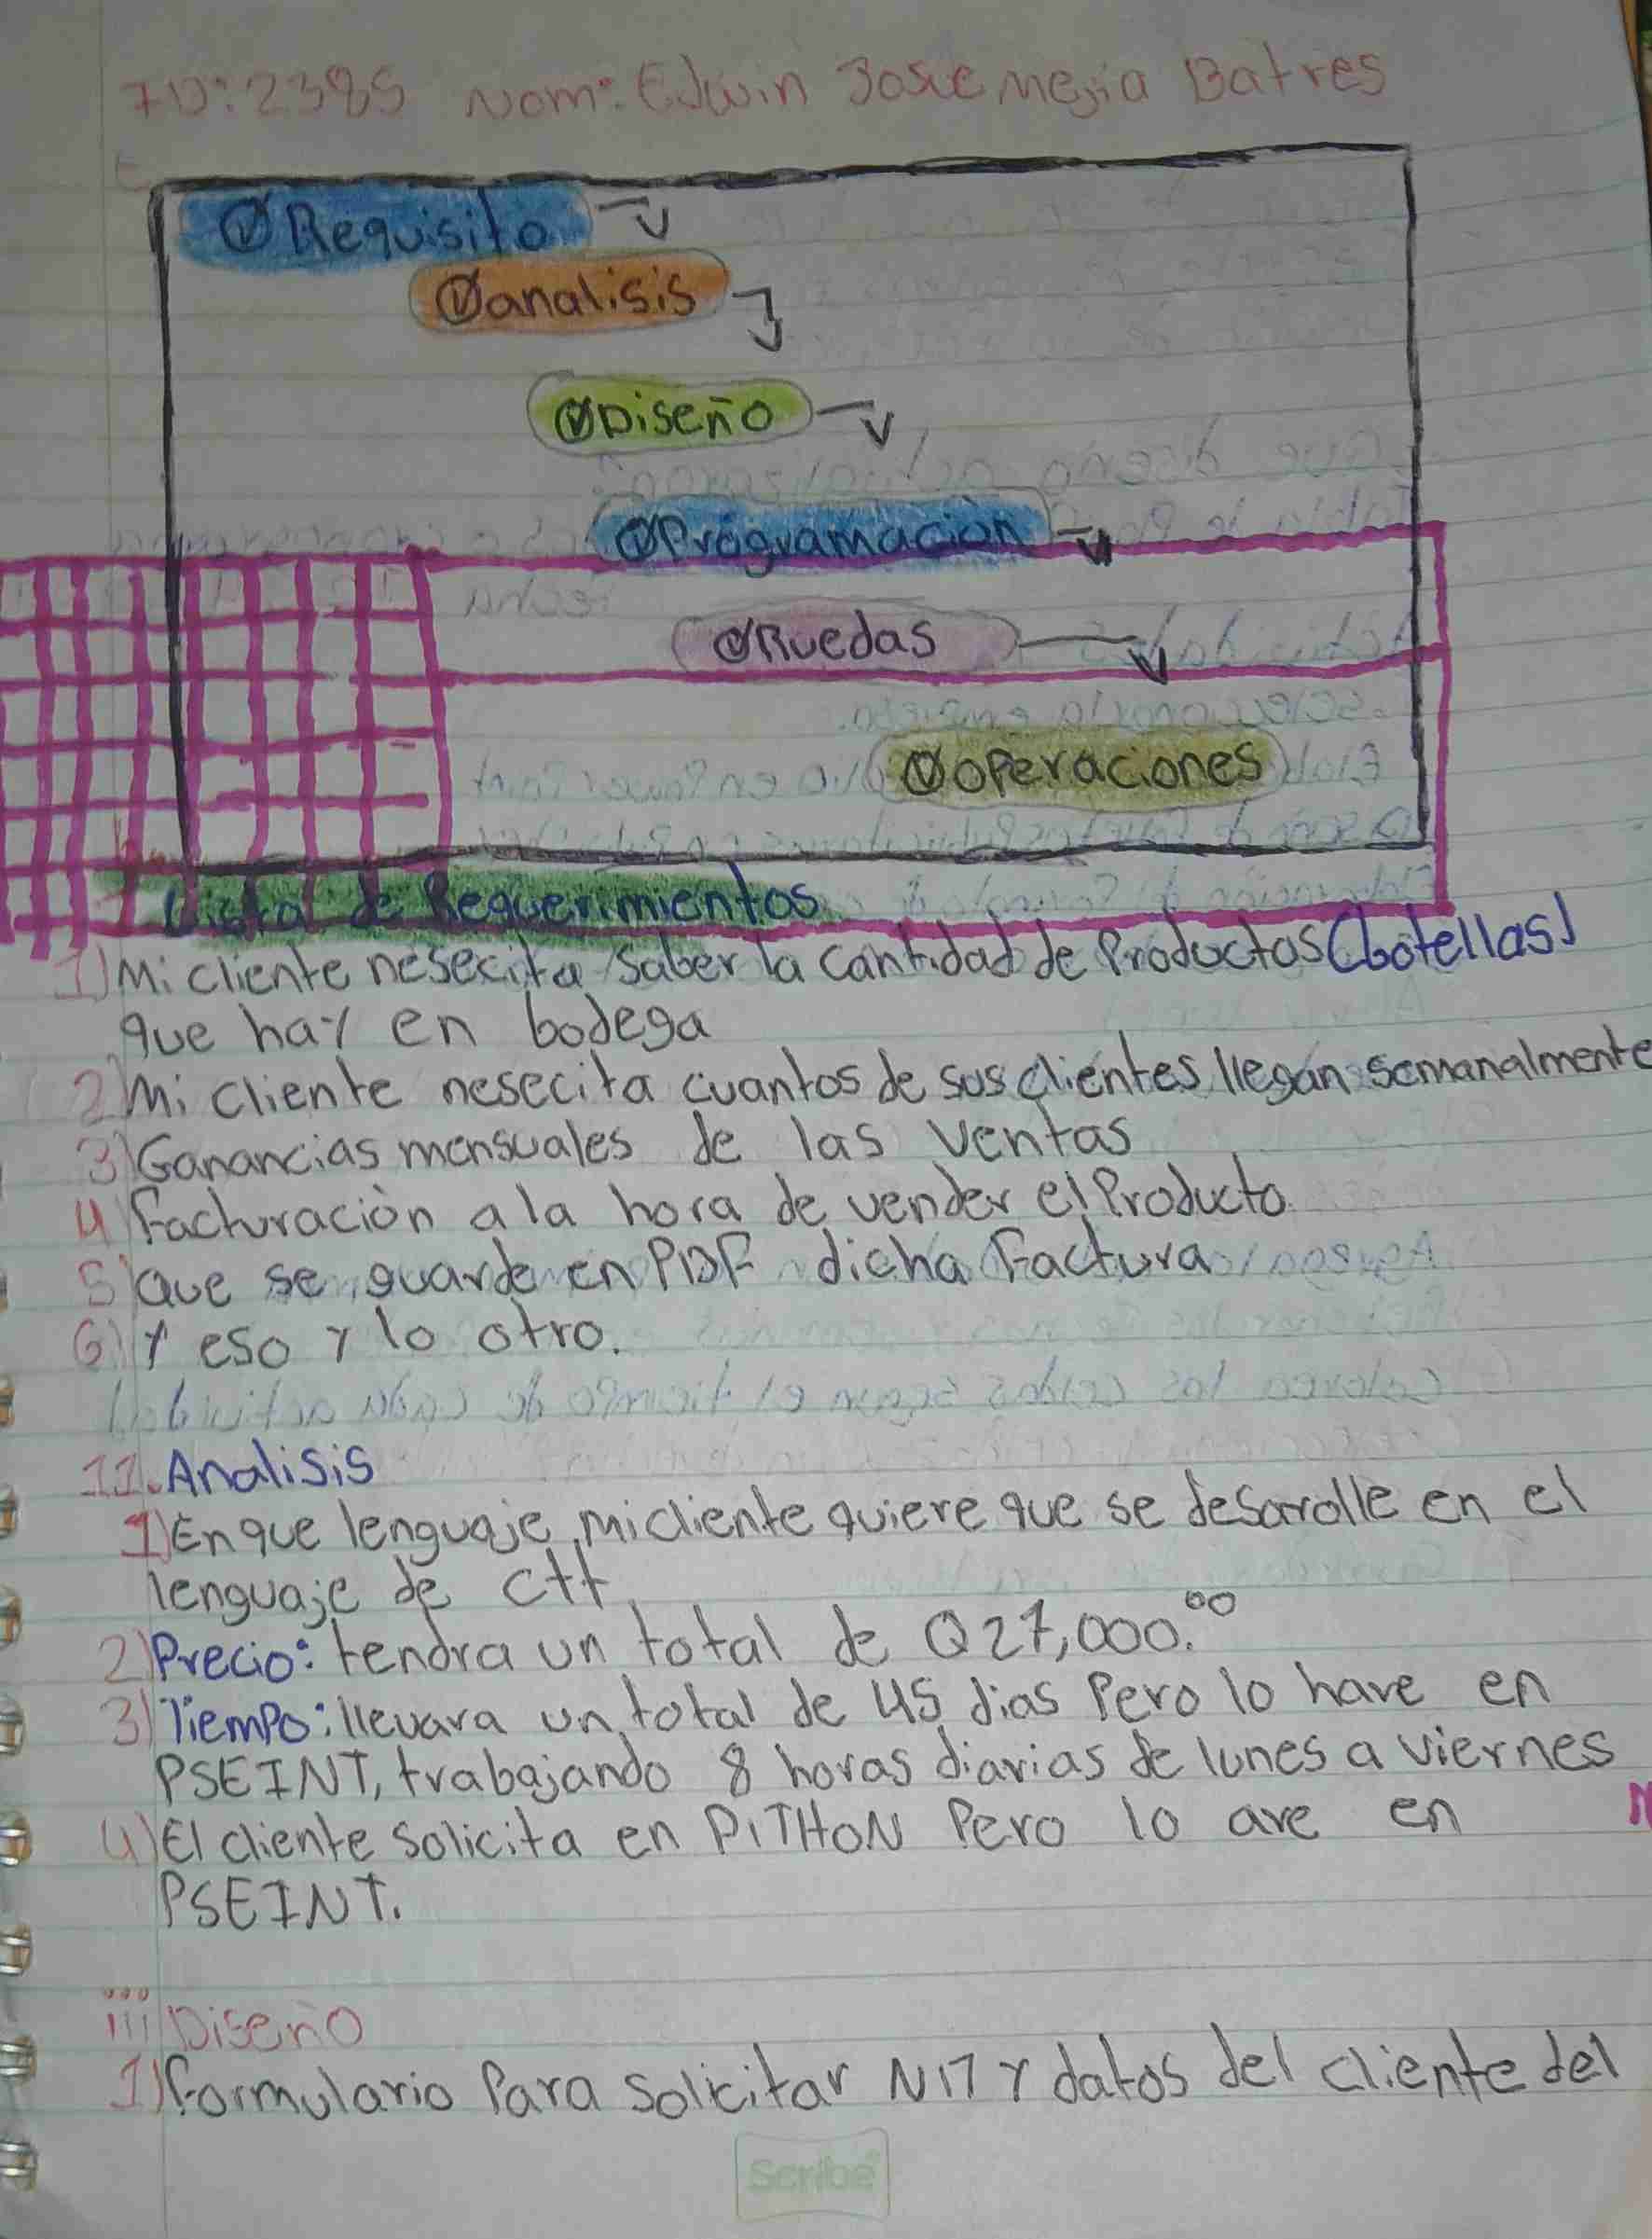 ID: 2385 Nom: Edwin Josue Mejia Batres
Requisito
analisis
Diseño
Programaciòn
Ruedas
Operaciones
I Lista de Requerimientos
1) Mi cliente nesecita saber la cantidad de Productos (botellas)
que hay en bodega
2) Mi cliente nesecita cuantos de sus clientes llegan semanalmente
3) Ganancias mensuales de las ventas
4) Facturaciòn a la hora de vender el Producto
5) que se guarde en PDF dicha Factura
6) Y eso y lo otro.
II. Analisis
1) En que lenguaje mi cliente quiere que se desarolle en el
lenguaje de C++
2) Precio: tendra un total de Q27,000.00
3) Tiempo: llevara un total de 45 dias Pero lo hare en
PSEINT, trabajando 8 horas diarias de lunes a viernes
4) El cliente solicita en PiTHON Pero lo are en
PSEINT.
iii Diseño
1) Formulario Para solicitar NIT y datos del cliente del
Scribe